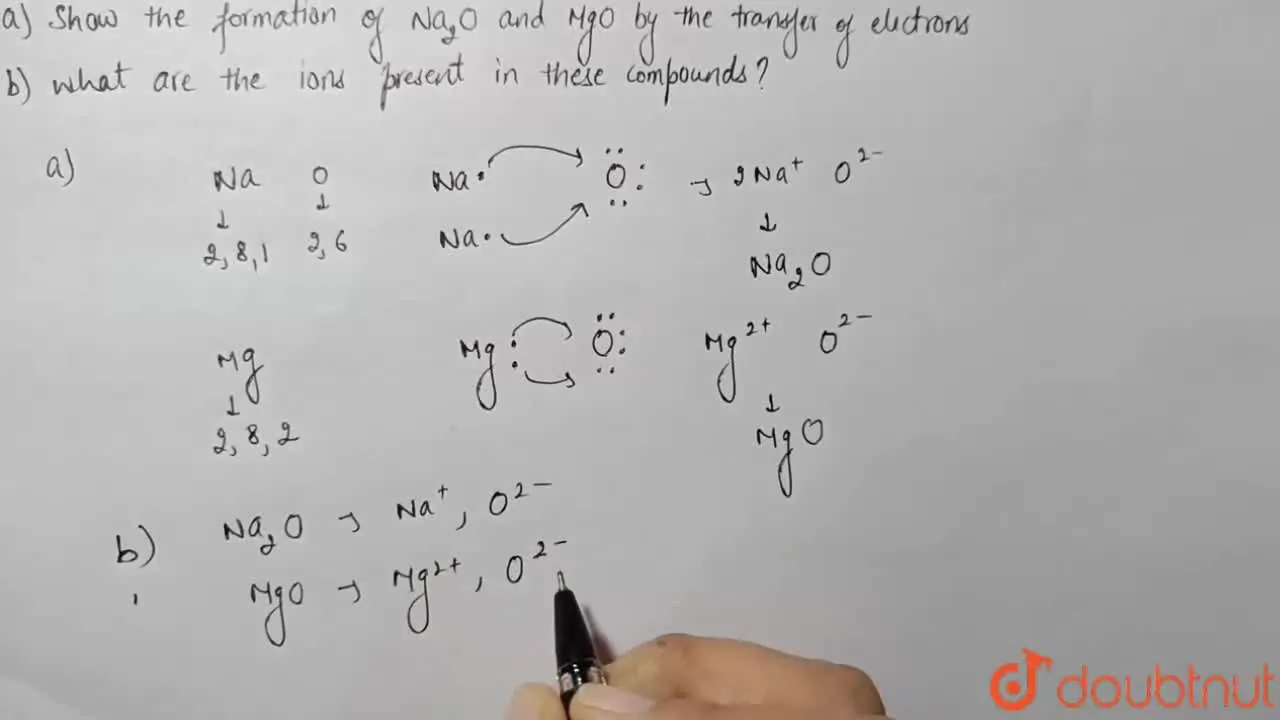 a) Show the formation of Na₂O and MgO by the transfer of electrons
b) What are the ions present in these compounds?
a) Na O Na· :Ö: → 2Na⁺ O²⁻
↓ ↓ ↓
2,8,1 2,6 Na· Na₂O
Mg Mg: :Ö: Mg²⁺ O²⁻
↓ ↓
2,8,2 MgO
b) Na₂O → Na⁺, O²⁻
MgO → Mg²⁺, O²⁻
doubtnut